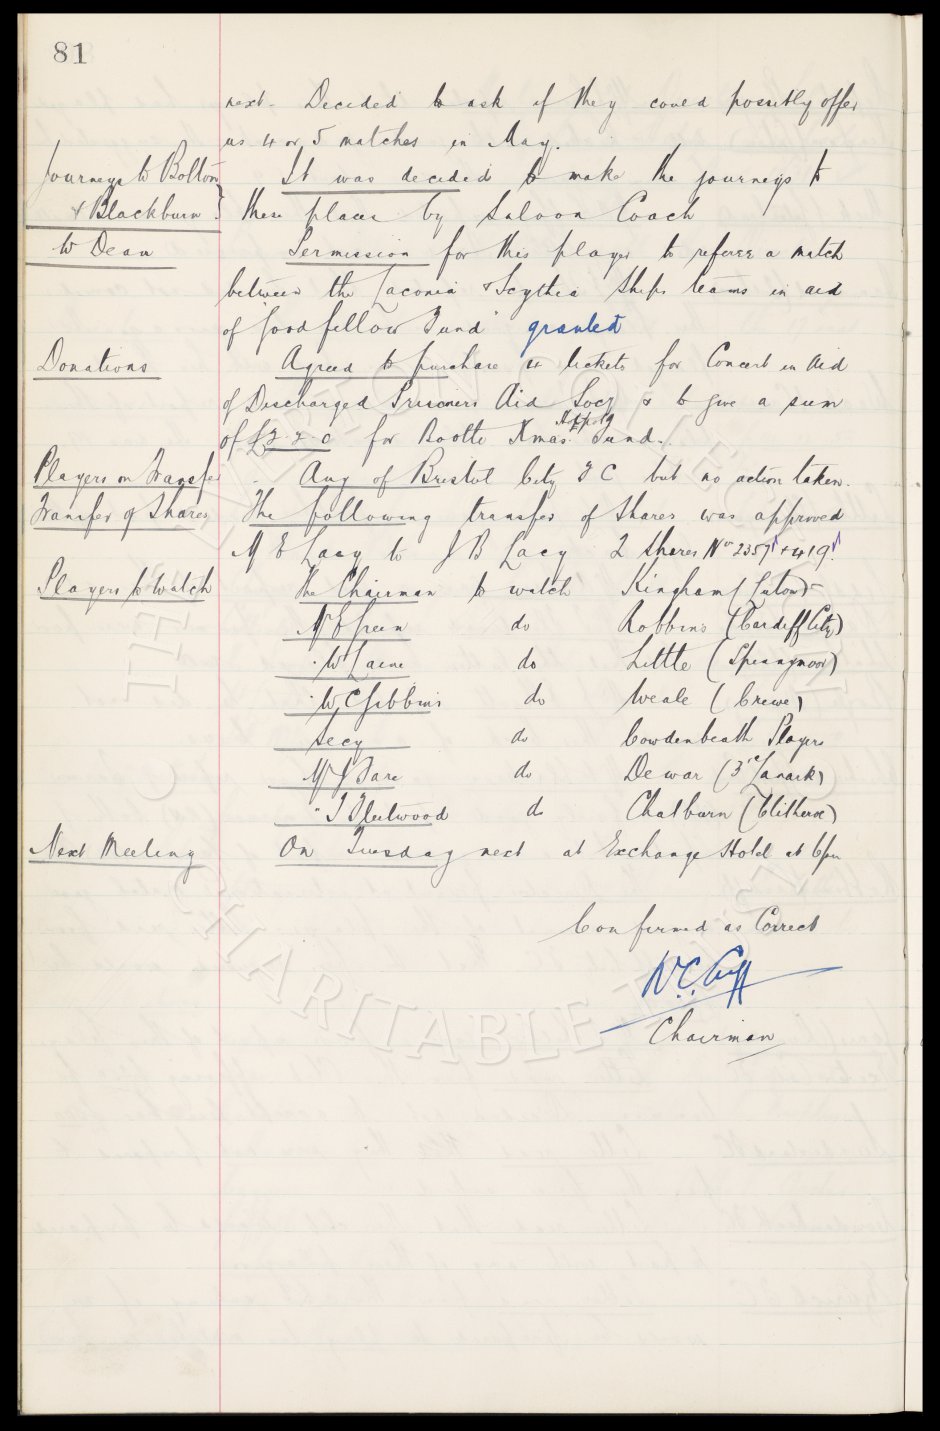 81
next. Decided to ask if they could possibly offer
us 4 or 5 matches in May.
Journeys to Bolton & Blackburn } It was decided to make the journeys to
these places by Saloon Coach
W Dean Permission for this player to referee a match
between the Laconia & Scythia Ships teams in aid
of Goodfellow Fund granted
Donations Agreed to purchase 4 tickets for Concert in Aid
of Discharged Prisoners Aid Socy & to give a sum
of £2-2-0 for Bootle Xmas Fund.
Players on Transfer Any of Bristol City F C but no action taken.
Transfer of Shares The following transfer of Shares was approved
M E Lacy to J B Lacy 2 Shares Nos 2357 & 419.
Players to Watch The Chairman to watch Kingham (Luton)
Mr E Green do Robbins (Cardiff City)
" W do Little (Spennymoor)
" W C Gibbins do Weale (Crewe)
Secy do Cowdenbeath Players
Mr J Sare do Dewar (3rd Lanark)
" T Fleetwood do Chatburn (Clitheroe)
Next Meeting On Tuesday next at Exchange Hotel at 6pm
Confirmed as Correct
W.C. Cuff
Chairman
THE EVERTON COLLECTION
CHARITABLE TRUST